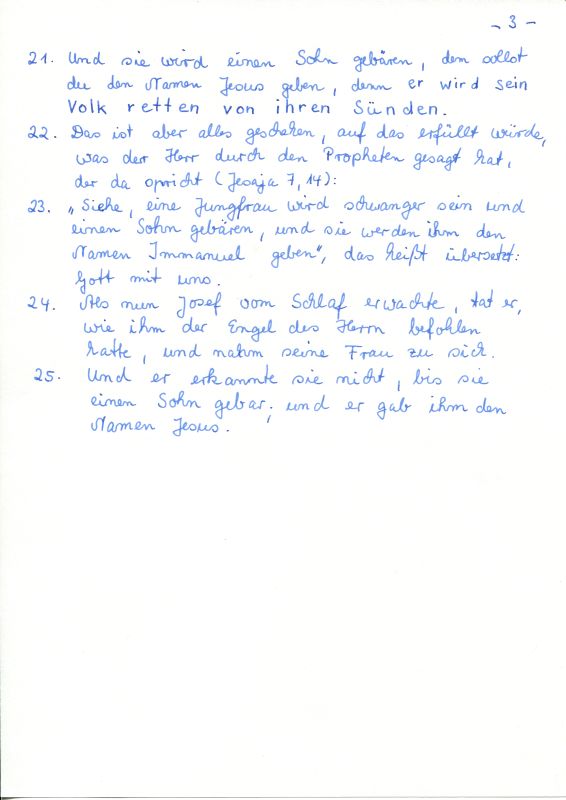 - 3 -
21. Und sie wird einen Sohn gebären, dem sollst
du den Namen Jesus geben, denn er wird sein
Volk retten von ihren Sünden.
22. Das ist aber alles geschehen, auf das erfüllt würde,
was der Herr durch den Propheten gesagt hat,
der da spricht (Jesaja 7, 14):
23. „Siehe, eine Jungfrau wird schwanger sein und
einen Sohn gebären, und sie werden ihm den
Namen Immanuel geben", das heißt übersetzt:
Gott mit uns.
24. Als nun Josef vom Schlaf erwachte, tat er,
wie ihm der Engel des Herrn befohlen
hatte, und nahm seine Frau zu sich.
25. Und er erkannte sie nicht, bis sie
einen Sohn gebar; und er gab ihm den
Namen Jesus.